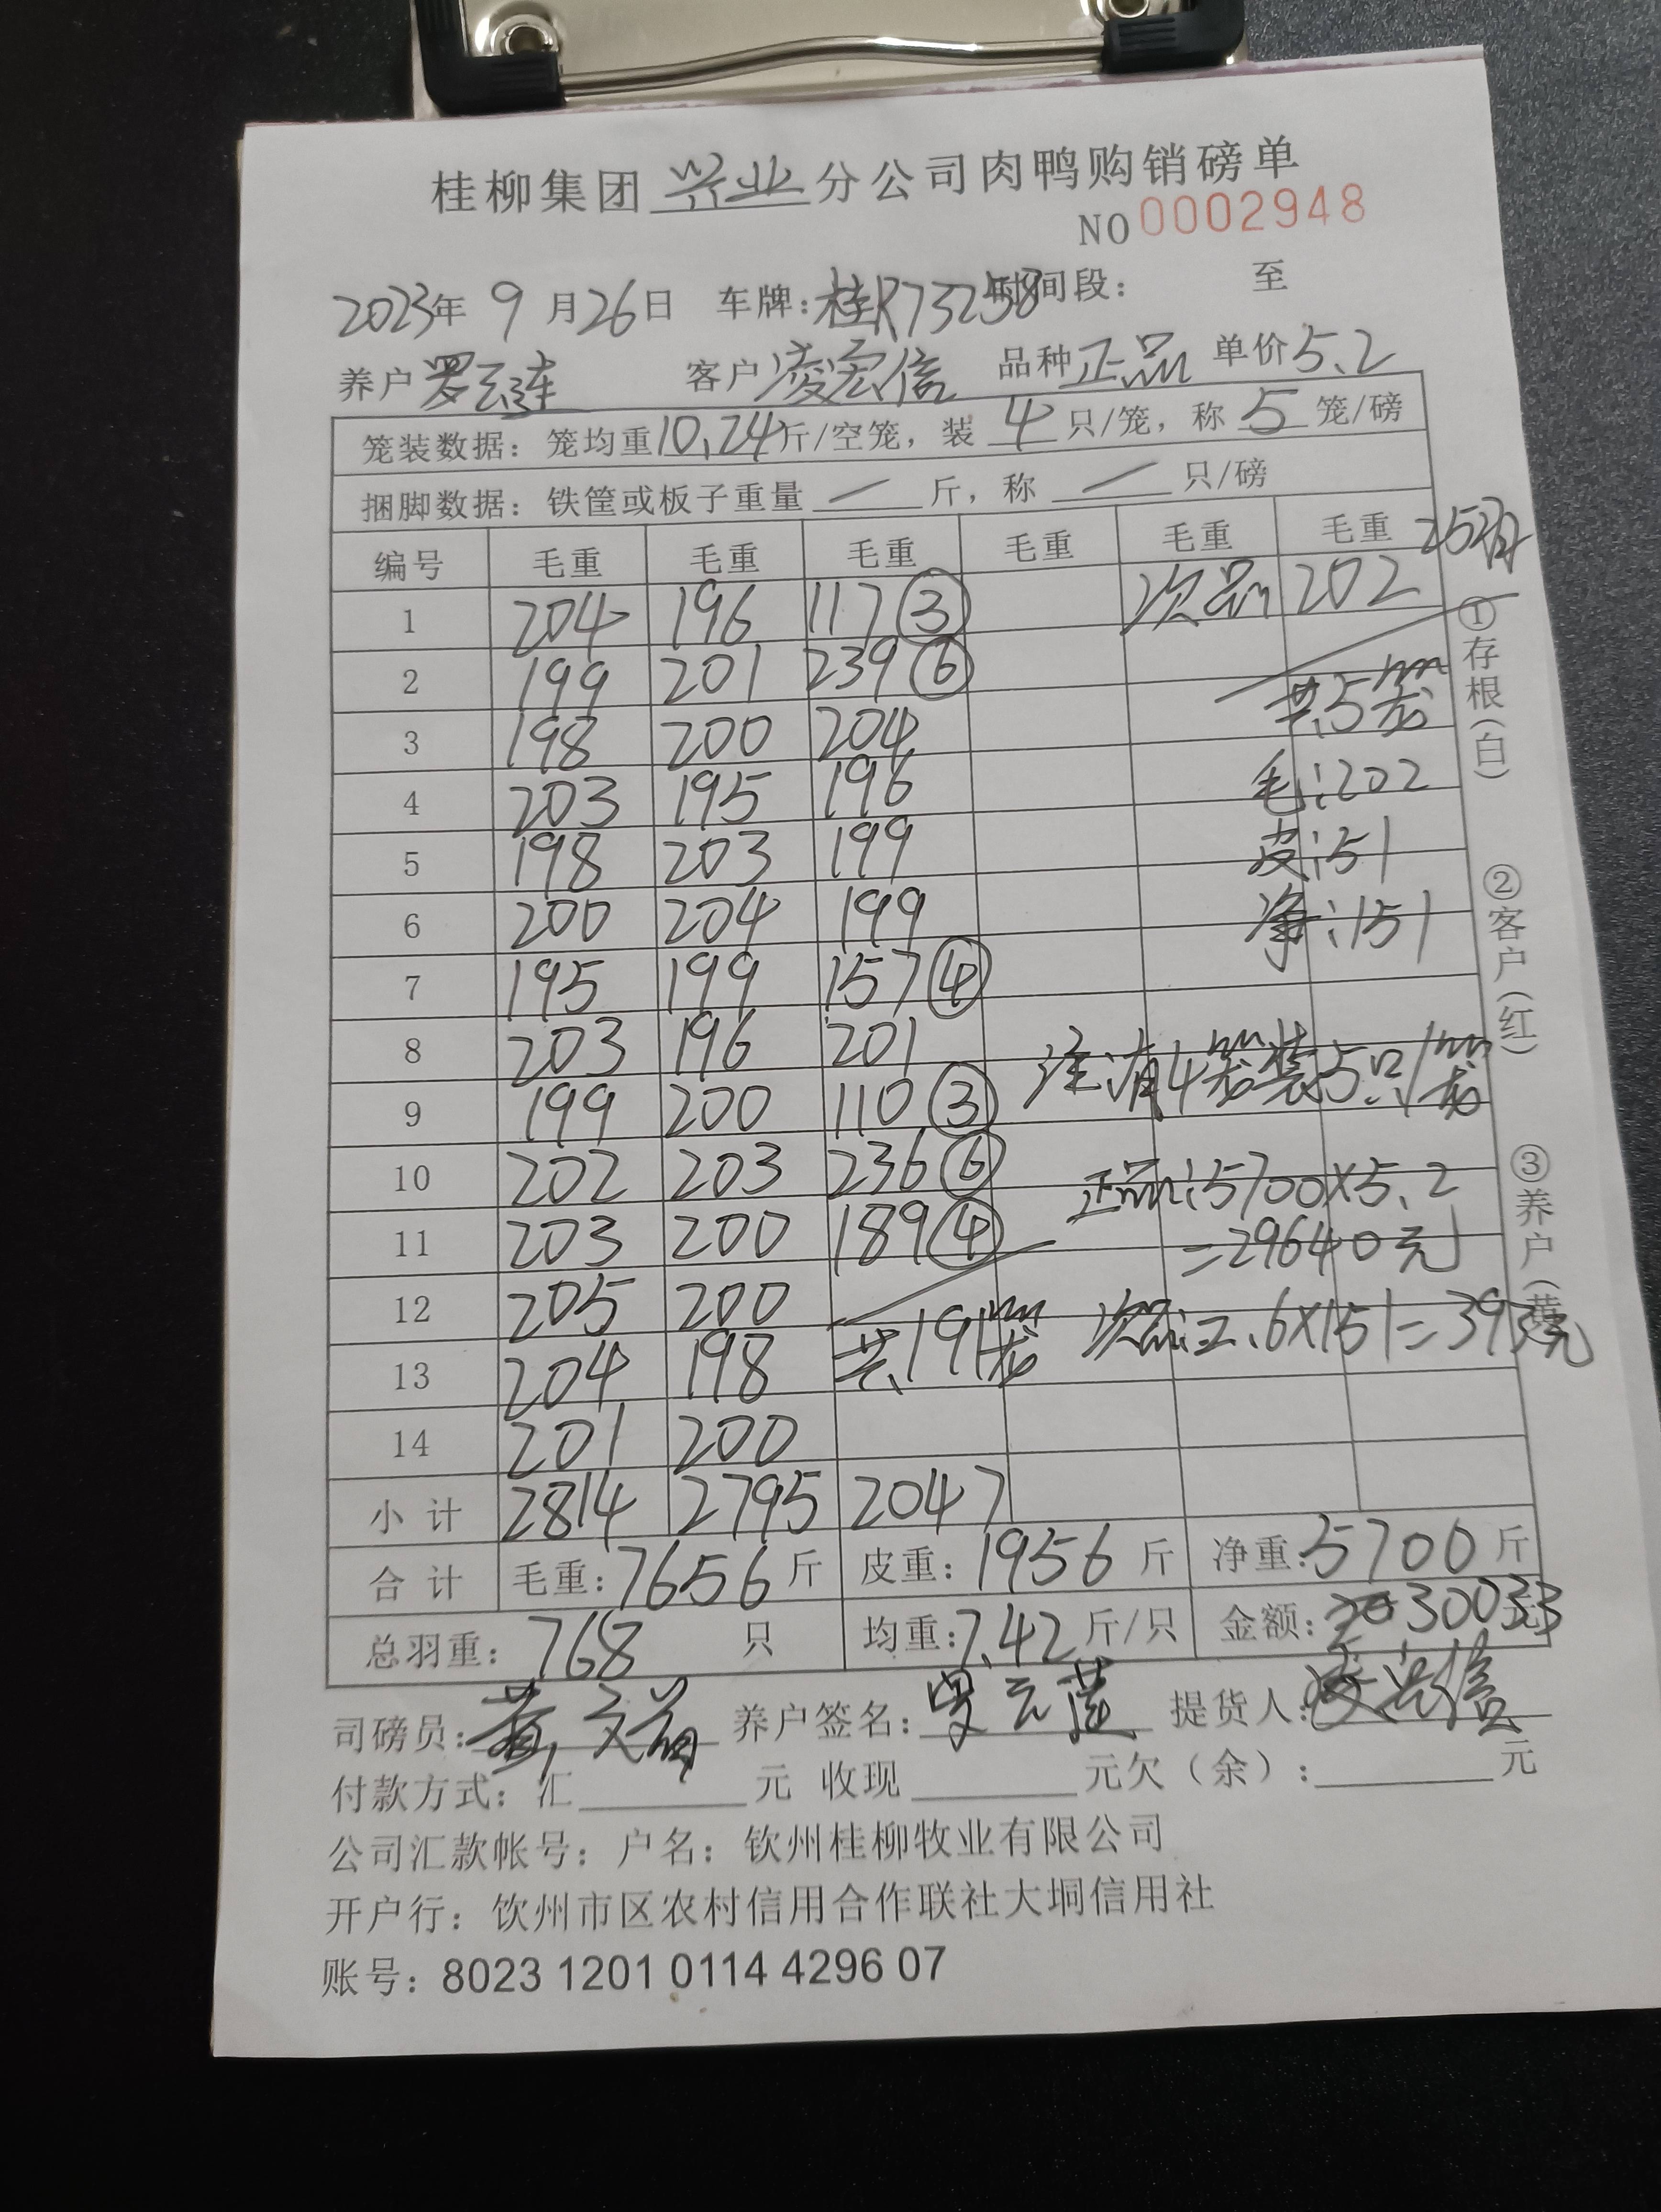 桂柳集团 兴业 分公司肉鸭购销磅单
NO 0002948
2023年 9 月 26 日 车牌: 桂R73258 时间段: 至
养户 罗云连 客户 凌宏信 品种 正品 单价 5.2
笼装数据: 笼均重 10.24 斤/空笼, 装 4 只/笼, 称 5 笼/磅
捆脚数据: 铁筐或板子重量 — 斤, 称 — 只/磅
编号 毛重 毛重 毛重 毛重 毛重 毛重
1 204 196 117 ③ 次品 202
2 199 201 239 ⑥
共5笼
3 198 200 204
4 203 195 196 毛:202
5 198 203 199 皮:51
6 200 204 199 净:151
7 195 199 157 ④
8 203 196 201
注:有4笼装5只/笼
9 199 200 110 ③
10 202 203 236 ⑥ 正品:5700×5.2
11 203 200 189 ④ =29640元
12 205 200
13 204 198 共191笼 次品:2.6×151=393元
14 201 200
小计 2814 2795 2047
合计 毛重: 7656 斤 皮重: 1956 斤 净重: 5700 斤
总羽重: 768 只 均重: 7.42 斤/只 金额: 30033
司磅员: 养户签名: 罗云莲 提货人:
付款方式: 汇 元 收现 元欠(余): 元
公司汇款帐号: 户名: 钦州桂柳牧业有限公司
开户行: 饮州市区农村信用合作联社大垌信用社
账号: 8023 1201 0114 4296 07
①存根(白) ②客户(红) ③养户(黄)